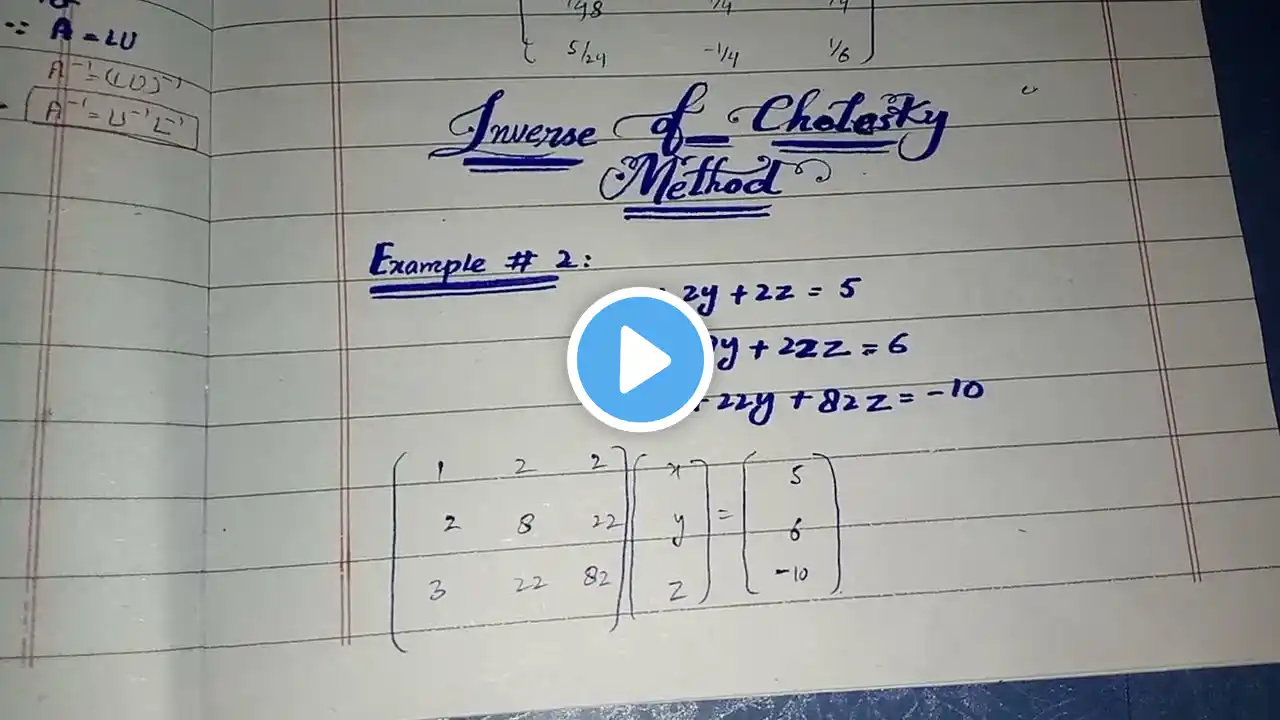 ∵ A = LU
A⁻¹ = (LU)⁻¹
A⁻¹ = U⁻¹ L⁻¹
1/48 1/4
5/24 -1/4 1/6
Inverse of Cholesky
Method
Example # 2:
2y + 2z = 5
y + 22z = 6
+ 22y + 82z = -10
1 2 2 x 5
2 8 22 y = 6
3 22 82 z -10